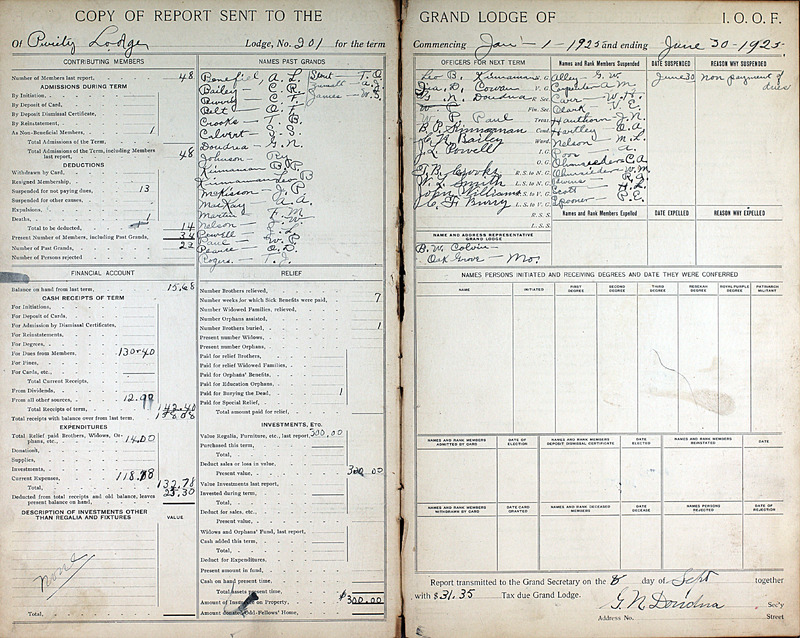 COPY OF REPORT SENT TO THE
Of Purity Lodge Lodge, No. 201 for the term
CONTRIBUTING MEMBERS
Number of Members last report, 48
ADMISSIONS DURING TERM
By Initiation,
By Deposit of Card,
By Deposit Dismissal Certificate,
By Reinstatement,
As Non-Beneficial Members, 1
Total Admissions of the Term,
Total Admissions of the Term, including Members last report, 48
DEDUCTIONS
Withdrawn by Card,
Resigned Membership,
Suspended for not paying dues, 13
Suspended for other causes,
Expulsions,
Deaths, 1
Total to be deducted, 14
Present Number of Members, including Past Grands, 34
Number of Past Grands, 22
Number of Persons rejected
NAMES PAST GRANDS
Benefiel, A. L.
Bailey - C. R.
Belt - O. T.
Crooks - T. B.
Calvirt - S. S.
Doudna - G. N.
Johnson
Kinnaman B. P.
Kinnaman Leo B
McKisson - J. P
McKay A. A.
Martin F. M
Nelson
Powell - J. L.
Paul - W. P.
Pearce O. D.
James - W. S.
FINANCIAL ACCOUNT
Balance on hand from last term, 15.68
CASH RECEIPTS OF TERM
For Initiations,
For Deposit of Cards,
For Admission by Dismissal Certificates,
For Reinstatements,
For Degrees,
For Dues from Members, 130.40
For Fines,
For Cards, etc.,
Total Current Receipts,
From Dividends,
From all other sources, 12.00
Total Receipts of term, 142.40
Total receipts with balance over from last term, 158.08
EXPENDITURES
Total Relief paid Brothers, Widows, Orphans, etc., 14.00
Donations,
Supplies,
Investments,
Current Expenses, 118.78
Total, 132.78
Deducted from total receipts and old balance, leaves present balance on hand, 25.30
DESCRIPTION OF INVESTMENTS OTHER THAN REGALIA AND FIXTURES
VALUE
None
Total,
RELIEF
Number Brothers relieved,
Number weeks for which Sick Benefits were paid, 7
Number Widowed Families, relieved,
Number Orphans assisted,
Number Brothers buried, 1
Present number Widows,
Present number Orphans,
Paid for relief Brothers,
Paid for relief Widowed Families,
Paid for Orphans' Benefits,
Paid for Education Orphans,
Paid for Burying the Dead, 1
Paid for Special Relief,
Total amount paid for relief,
INVESTMENTS, ETC.
Value Regalia, Furniture, etc., last report, 300.00
Purchased this term,
Total,
Deduct sales or loss in value,
Present value, 300.00
Value Investments last report,
Invested during term,
Total,
Deduct for sales, etc.,
Present value,
Widows and Orphans' Fund, last report,
Cash added this term,
Total,
Deduct for Expenditures,
Present amount in fund,
Cash on hand present time,
Total assets present time,
Amount of Insurance on Property, $300.00
Amount donated Odd-Fellows' Home,
GRAND LODGE OF I. O. O. F.
Commencing Jan - 1 - 1925 and ending June 30 - 1925.
OFFICERS FOR NEXT TERM
Leo B. Kinnaman N. G.
D. Cowan V. G.
G. N. Doudna R. Sec.
Fin. Sec.
W. P. Paul Treas.
B. P. Kinnaman Cond.
C. R. Bailey Ward.
J. L. Powell I. G.
O. G.
T. B. Crooks R. S. to N. G.
W. L. Smith L. S. to N. G.
John Williams R. S. to V. G.
Burry L. S. to V. G.
R. S. S.
L. S. S.
NAME AND ADDRESS REPRESENTATIVE GRAND LODGE
B. W. Colvin -
Oak Grove - Mo.
Names and Rank Members Suspended
Alley - G. W.
Carpenter A M.
Carr - W. H.
Clark - V. E.
Hauthorn - J. N.
Hartley - O. A.
Nelson - M. L.
Poor - A.
Scott - H. L.
Spooner - P. E.
DATE SUSPENDED
June 30
REASON WHY SUSPENDED
Non payment of dues
Names and Rank Members Expelled
DATE EXPELLED
REASON WHY EXPELLED
NAMES PERSONS INITIATED AND RECEIVING DEGREES AND DATE THEY WERE CONFERRED
NAME INITIATED FIRST DEGREE SECOND DEGREE THIRD DEGREE REBEKAH DEGREE ROYAL PURPLE DEGREE PATRIARCH MILITANT
NAMES AND RANK MEMBERS ADMITTED BY CARD
DATE OF ELECTION
NAMES AND RANK MEMBERS DEPOSIT DISMISSAL CERTIFICATE
DATE ELECTED
NAMES AND RANK MEMBERS REINSTATED
DATE
NAMES AND RANK MEMBERS WITHDRAWN BY CARD
DATE CARD GRANTED
NAMES AND RANK DECEASED MEMBERS
DATE OF DECEASE
NAMES PERSONS REJECTED
DATE OF REJECTION
Report transmitted to the Grand Secretary on the 8 day of Sept together
with $31.35 Tax due Grand Lodge.
G. N. Doudna Sec'y
Address No. Street